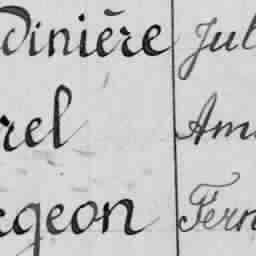 dinière Jul
rel Am
geon Fern